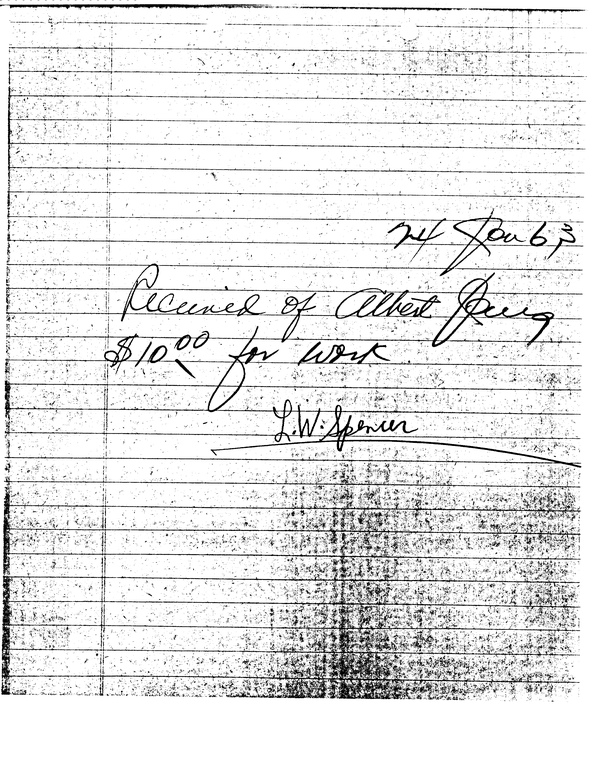 24 Jan 63
Received of Albert
$10.00 for work
L.W. Spencer